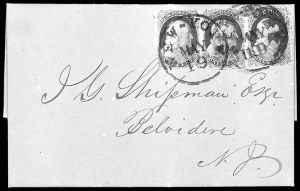 NEW-YORK
MAY
19
J. G. Shipman Esqr
Belvidere
N. J.